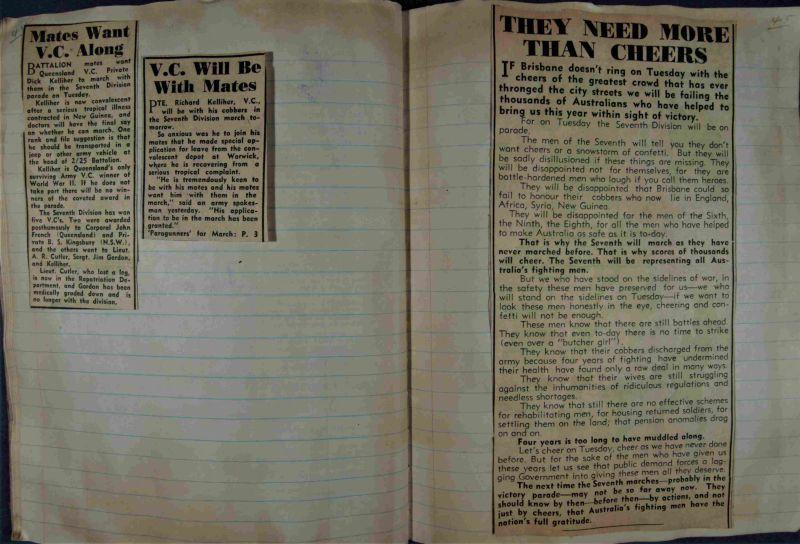 Mates Want
V.C. Along
BATTALION mates want
Queensland V.C. Private
Dick Kelliher to march with
them in the Seventh Division
parade on Tuesday.
Kelliher is now convalescent
after a serious tropical illness
contracted in New Guinea, and
doctors will have the final say
on whether he can march. One
rank and file suggestion is that
he should be transported in a
jeep or other army vehicle at
the head of 2/25 Battalion.
Kelliher is Queensland's only
surviving Army V.C. winner of
World War II. If he does not
take part there will be no win-
ners of the coveted award in
the parade.
The Seventh Division has won
five V.C's. Two were awarded
posthumously to Corporal John
French (Queensland) and Pri-
vate B. S. Kingsbury (N.S.W.),
and the others went to Lieut.
A. R. Cutler, Sergt. Jim Gordon,
and Kelliher.
Lieut. Cutler, who lost a leg,
is now in the Repatriation De-
partment, and Gordon has been
medically graded down and is
no longer with the division.
V.C. Will Be
With Mates
PTE. Richard Kelliher, V.C.,
will be with his cobbers in
the Seventh Division march to-
morrow.
So anxious was he to join his
mates that he made special ap-
plication for leave from the con-
valescent depot at Warwick,
where he is recovering from a
serious tropical complaint.
"He is tremendously keen to
be with his mates and his mates
want him with them in the
march," said an army spokes-
man yesterday. "His applica-
tion to be in the march has been
granted."
'Paragunners' for March: P. 3
45
THEY NEED MORE
THAN CHEERS
IF Brisbane doesn't ring on Tuesday with the
cheers of the greatest crowd that has ever
thronged the city streets we will be failing the
thousands of Australians who have helped to
bring us this year within sight of victory.
For on Tuesday the Seventh Division will be on
parade.
The men of the Seventh will tell you they don't
want cheers or a snowstorm of confetti. But they will
be sadly disillusioned if these things are missing. They
will be disappointed not for themselves, for they are
battle-hardened men who laugh if you call them heroes.
They will be disappointed that Brisbane could so
fail to honour their cobbers who now lie in England,
Africa, Syria, New Guinea.
They will be disappointed for the men of the Sixth,
the Ninth, the Eighth, for all the men who have helped
to make Australia as safe as it is to-day.
That is why the Seventh will march as they have
never marched before. That is why scores of thousands
will cheer. The Seventh will be representing all Aus-
tralia's fighting men.
But we who have stood on the sidelines of war, in
the safety these men have preserved for us—we who
will stand on the sidelines on Tuesday—if we want to
look these men honestly in the eye, cheering and con-
fetti will not be enough.
These men know that there are still battles ahead.
They know that even to-day there is no time to strike
(even over a "butcher girl").
They know that their cobbers discharged from the
army because four years of fighting have undermined
their health have found only a raw deal in many ways.
They know that their wives are still struggling
against the inhumanities of ridiculous regulations and
needless shortages.
They know that still there are no effective schemes
for rehabilitating men, for housing returned soldiers, for
settling them on the land; that pension anomalies drag
on and on.
Four years is too long to have muddled along.
Let's cheer on Tuesday, cheer as we have never done
before. But for the sake of the men who have given us
these years let us see that public demand forces a lag-
ging Government into giving these men all they deserve.
The next time the Seventh marches—probably in the
victory parade—may not be so far away now. They
should know by then—before then—by actions, and not
just by cheers, that Australia's fighting men have the
nation's full gratitude.